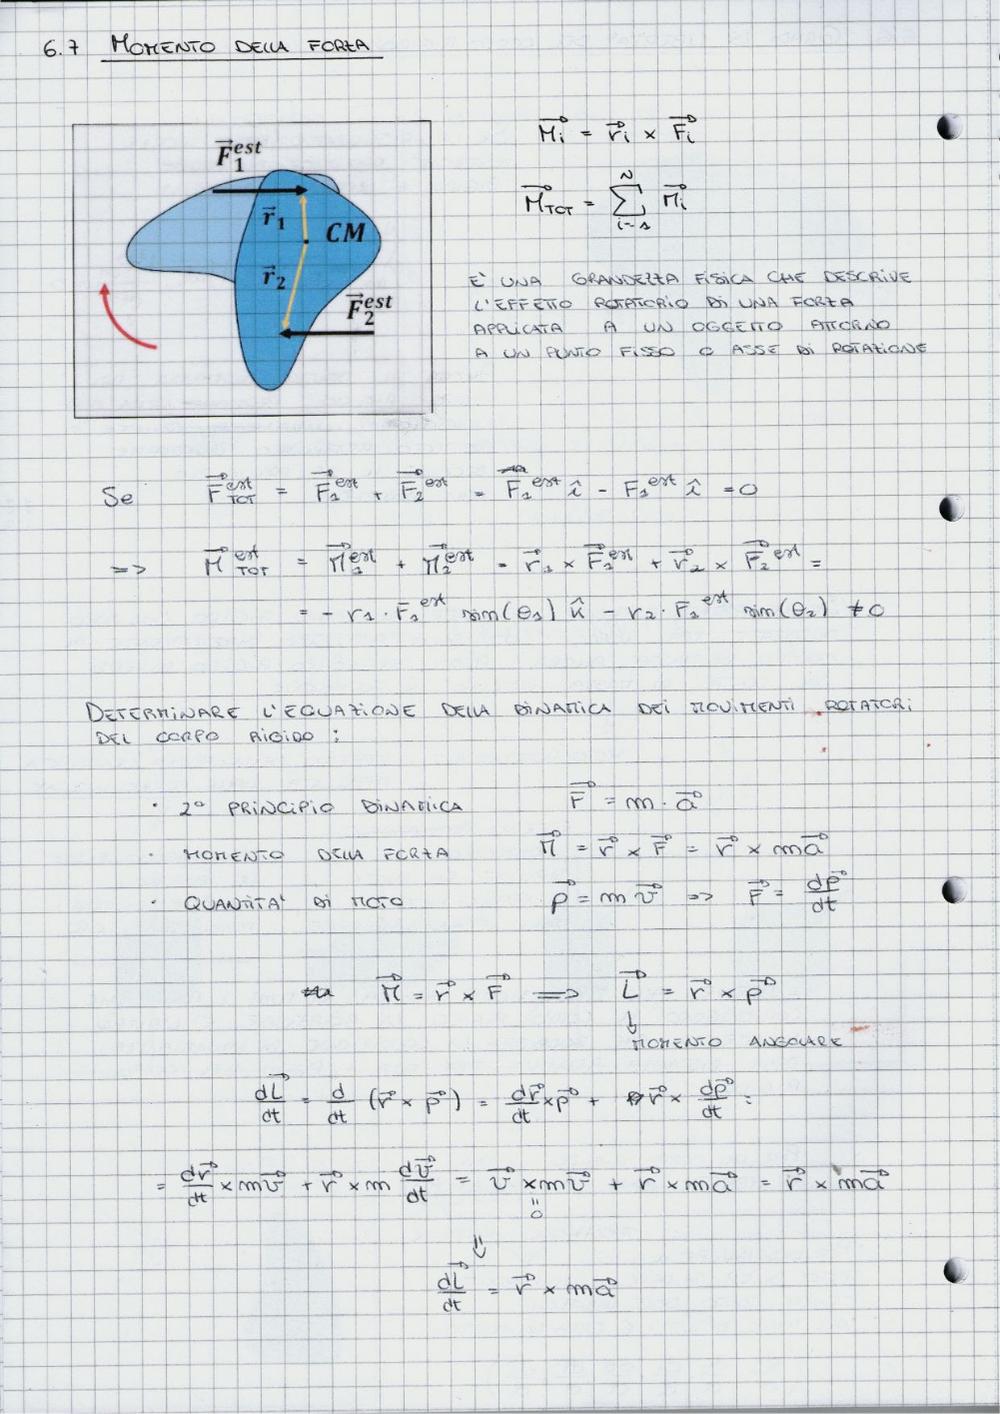 6.7 MOMENTO DELLA FORZA
F⃗₁ᵉˢᵗ
r⃗₁
CM
r⃗₂
F⃗₂ᵉˢᵗ
M⃗ᵢ = r⃗ᵢ × F⃗ᵢ
M⃗_TOT = Σ_{i=1}^{N} M⃗ᵢ
E' UNA GRANDEZZA FISICA CHE DESCRIVE
L'EFFETTO ROTATORIO DI UNA FORZA
APPLICATA A UN OGGETTO ATTORNO
A UN PUNTO FISSO O ASSE DI ROTAZIONE
Se F⃗_TOT^est = F⃗₁^est + F⃗₂^est = F⃗₁^est î - F₁^est î = 0
=> M⃗_TOT^est = M⃗₁^est + M⃗₂^est = r⃗₁ × F⃗₁^est + r⃗₂ × F⃗₂^est =
= - r₁ · F₁^est sin(θ₁) k̂ - r₂ · F₁^est sin(θ₂) ≠ 0
DETERMINARE L'EQUAZIONE DELLA DINAMICA DEI MOVIMENTI ROTATORI
DEL CORPO RIGIDO :
· 2° PRINCIPIO DINAMICA F⃗ = m · a⃗
· MOMENTO DELLA FORZA M⃗ = r⃗ × F⃗ = r⃗ × ma⃗
· QUANTITA' DI MOTO p⃗ = m v⃗ => F⃗ = dp⃗/dt
M⃗ = r⃗ × F⃗ => L⃗ = r⃗ × p⃗
↓
MOMENTO ANGOLARE
dL⃗/dt = d/dt (r⃗ × p⃗) = dr⃗/dt × p⃗ + r⃗ × dp⃗/dt =
= dr⃗/dt × mv⃗ + r⃗ × m dv⃗/dt = v⃗ × mv⃗ + r⃗ × ma⃗ = r⃗ × ma⃗
= 0
⇓
dL⃗/dt = r⃗ × ma⃗